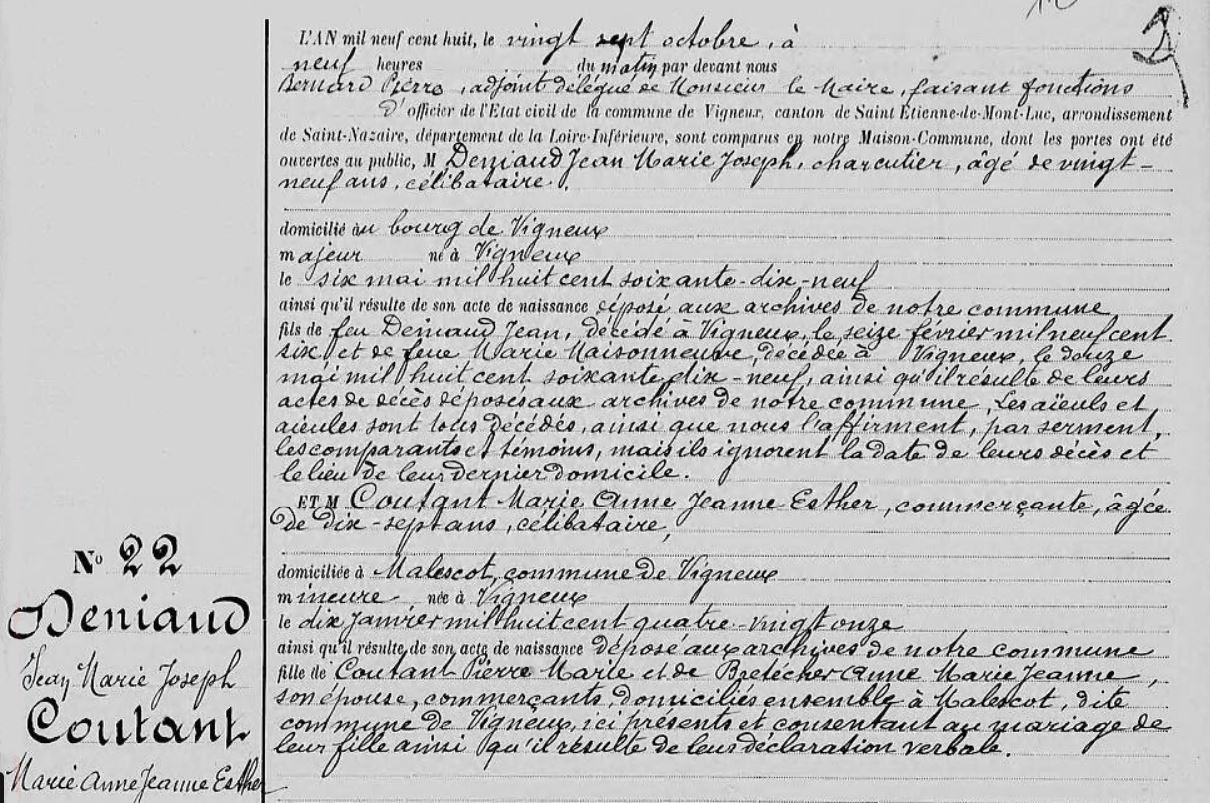 L'AN mil neuf cent huit, le vingt sept octobre, à
neuf heures du matin par devant nous
Bernard Pierre, adjoint délégué de Monsieur le Maire, faisant fonctions
d'officier de l'Etat civil de la commune de Vigneux, canton de Saint Etienne-de-Mont-Luc, arrondissement
de Saint-Nazaire, département de la Loire-Inférieure, sont comparus en notre Maison-Commune, dont les portes ont été
ouvertes au public, M Deniaud Jean Marie Joseph, charcutier, âgé de vingt-
neuf ans, célibataire.
domicilié au bourg de Vigneux
majeur né à Vigneux
le six mai mil huit cent soixante-dix-neuf
ainsi qu'il résulte de son acte de naissance déposé aux archives de notre commune
fils de feu Deniaud Jean, décédé à Vigneux, le seize février mil neuf cent
six et de feue Marie Maisonneuve, décédée à Vigneux, le douze
mai mil huit cent soixante dix-neuf, ainsi qu'il résulte de leurs
actes de décès déposés aux archives de notre commune, Les aïeuls et
aïeules sont tous décédés, ainsi que nous l'affirment, par serment,
les comparants et témoins, mais ils ignorent la date de leurs décès et
le lieu de leur dernier domicile.
ET M Coutant Marie Anne Jeanne Esther, commerçante, âgée
de dix-sept ans, célibataire,
domiciliée à Malescot, commune de Vigneux
mineure née à Vigneux
le dix Janvier mil huit cent quatre-vingt onze
ainsi qu'il résulte de son acte de naissance déposé aux archives de notre commune
fille de Coutant Pierre Marie et de Bretécher Anne Marie Jeanne,
son épouse, commerçants, domiciliés ensemble à Malescot, dite
commune de Vigneux, ici présents et consentant au mariage de
leur fille ainsi qu'il résulte de leur déclaration verbale.
N° 22
Deniaud
Jean Marie Joseph
Coutant
Marie Anne Jeanne Esther